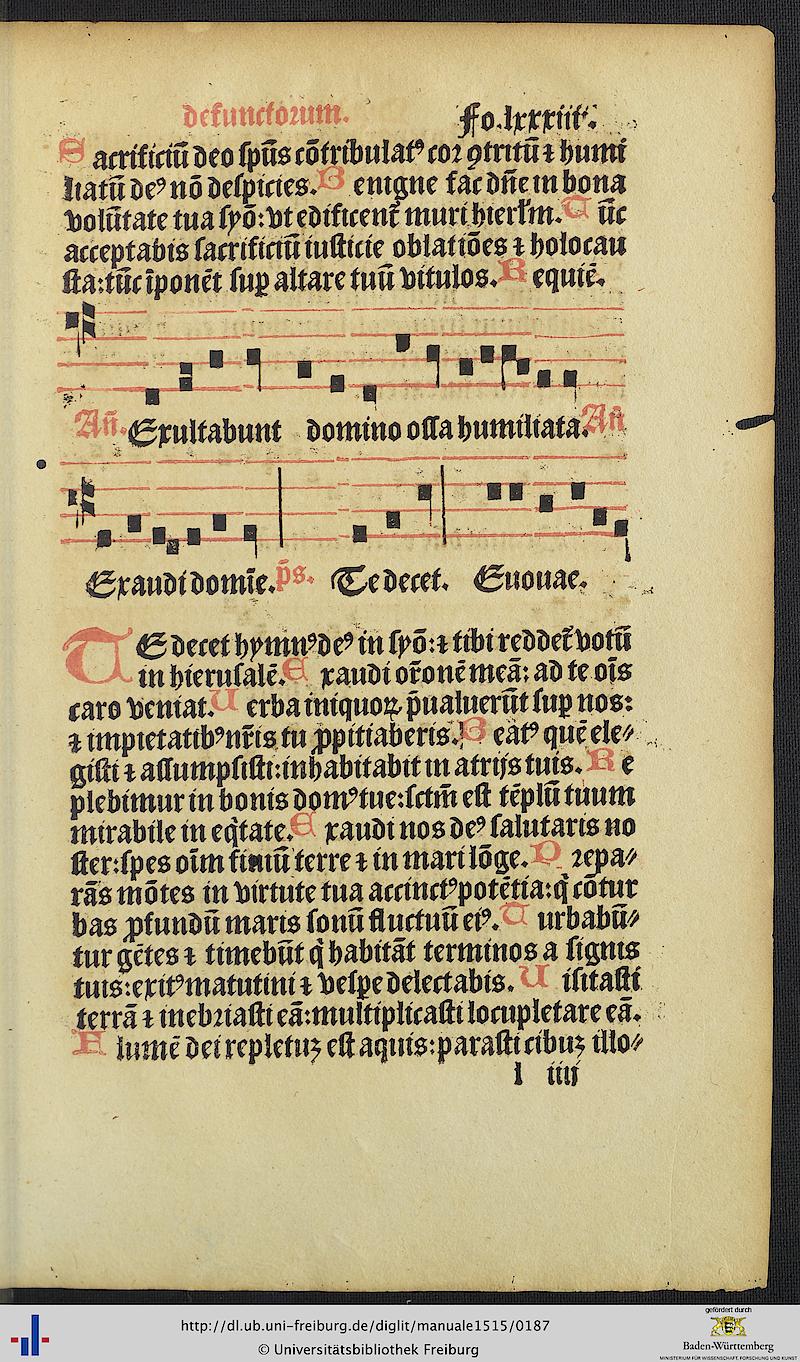 defunctorum. Fo. lxxxiiii.
Sacrificiū deo spūs cōtribulatꝰ cor ꝯtritū ⁊ humi
liatū deꝰ nō despicies. Benigne fac dn̄e in bona
volūtate tua syō: vt edificent̄ muri hierl̄m. Tūc
acceptabis sacrificiū iusticie oblatiōes ⁊ holocau
sta: tūc īponēt sup̱ altare tuū vitulos. Requiē.
Añ. Exultabunt domino ossa humiliata. Añ
Exaudi domīe. p̄s. Te decet. Euouae.
TE decet hymnꝰ deꝰ in syō: ⁊ tibi reddet̄ votū
in hierusalē. Exaudi or̄onē meā: ad te oīs
caro veniat. Uerba iniquoꝝ p̄ualuerūt sup̱ nos:
⁊ impietatibꝰ nr̄is tu ꝓpitiaberis. Beatꝰ quē ele⸗
gisti ⁊ assumpsisti: inhabitabit in atrijs tuis. Re
plebimur in bonis domꝰ tue: sctm̄ est tēplū tuum
mirabile in eq̄tate. Exaudi nos deꝰ salutaris no
ster: spes oīm finiū terre ⁊ in mari lōge. Prepa⸗
rās mōtes in virtute tua accinctꝰ potētia: q̄ cōtur
bas ꝓfundū maris sonū fluctuū eiꝰ. Turbabū⸗
tur gētes ⁊ timebūt q̄ habitāt terminos a signis
tuis: exitꝰ matutini ⁊ vespe delectabis. Uisitasti
terrā ⁊ inebriasti eā: multiplicasti locupletare eā.
Flumē dei repletuꝫ est aquis: parasti cibuꝫ illo⸗
l iiij
http://dl.ub.uni-freiburg.de/diglit/manuale1515/0187
© Universitätsbibliothek Freiburg
gefördert durch
Baden-Württemberg
MINISTERIUM FÜR WISSENSCHAFT, FORSCHUNG UND KUNST